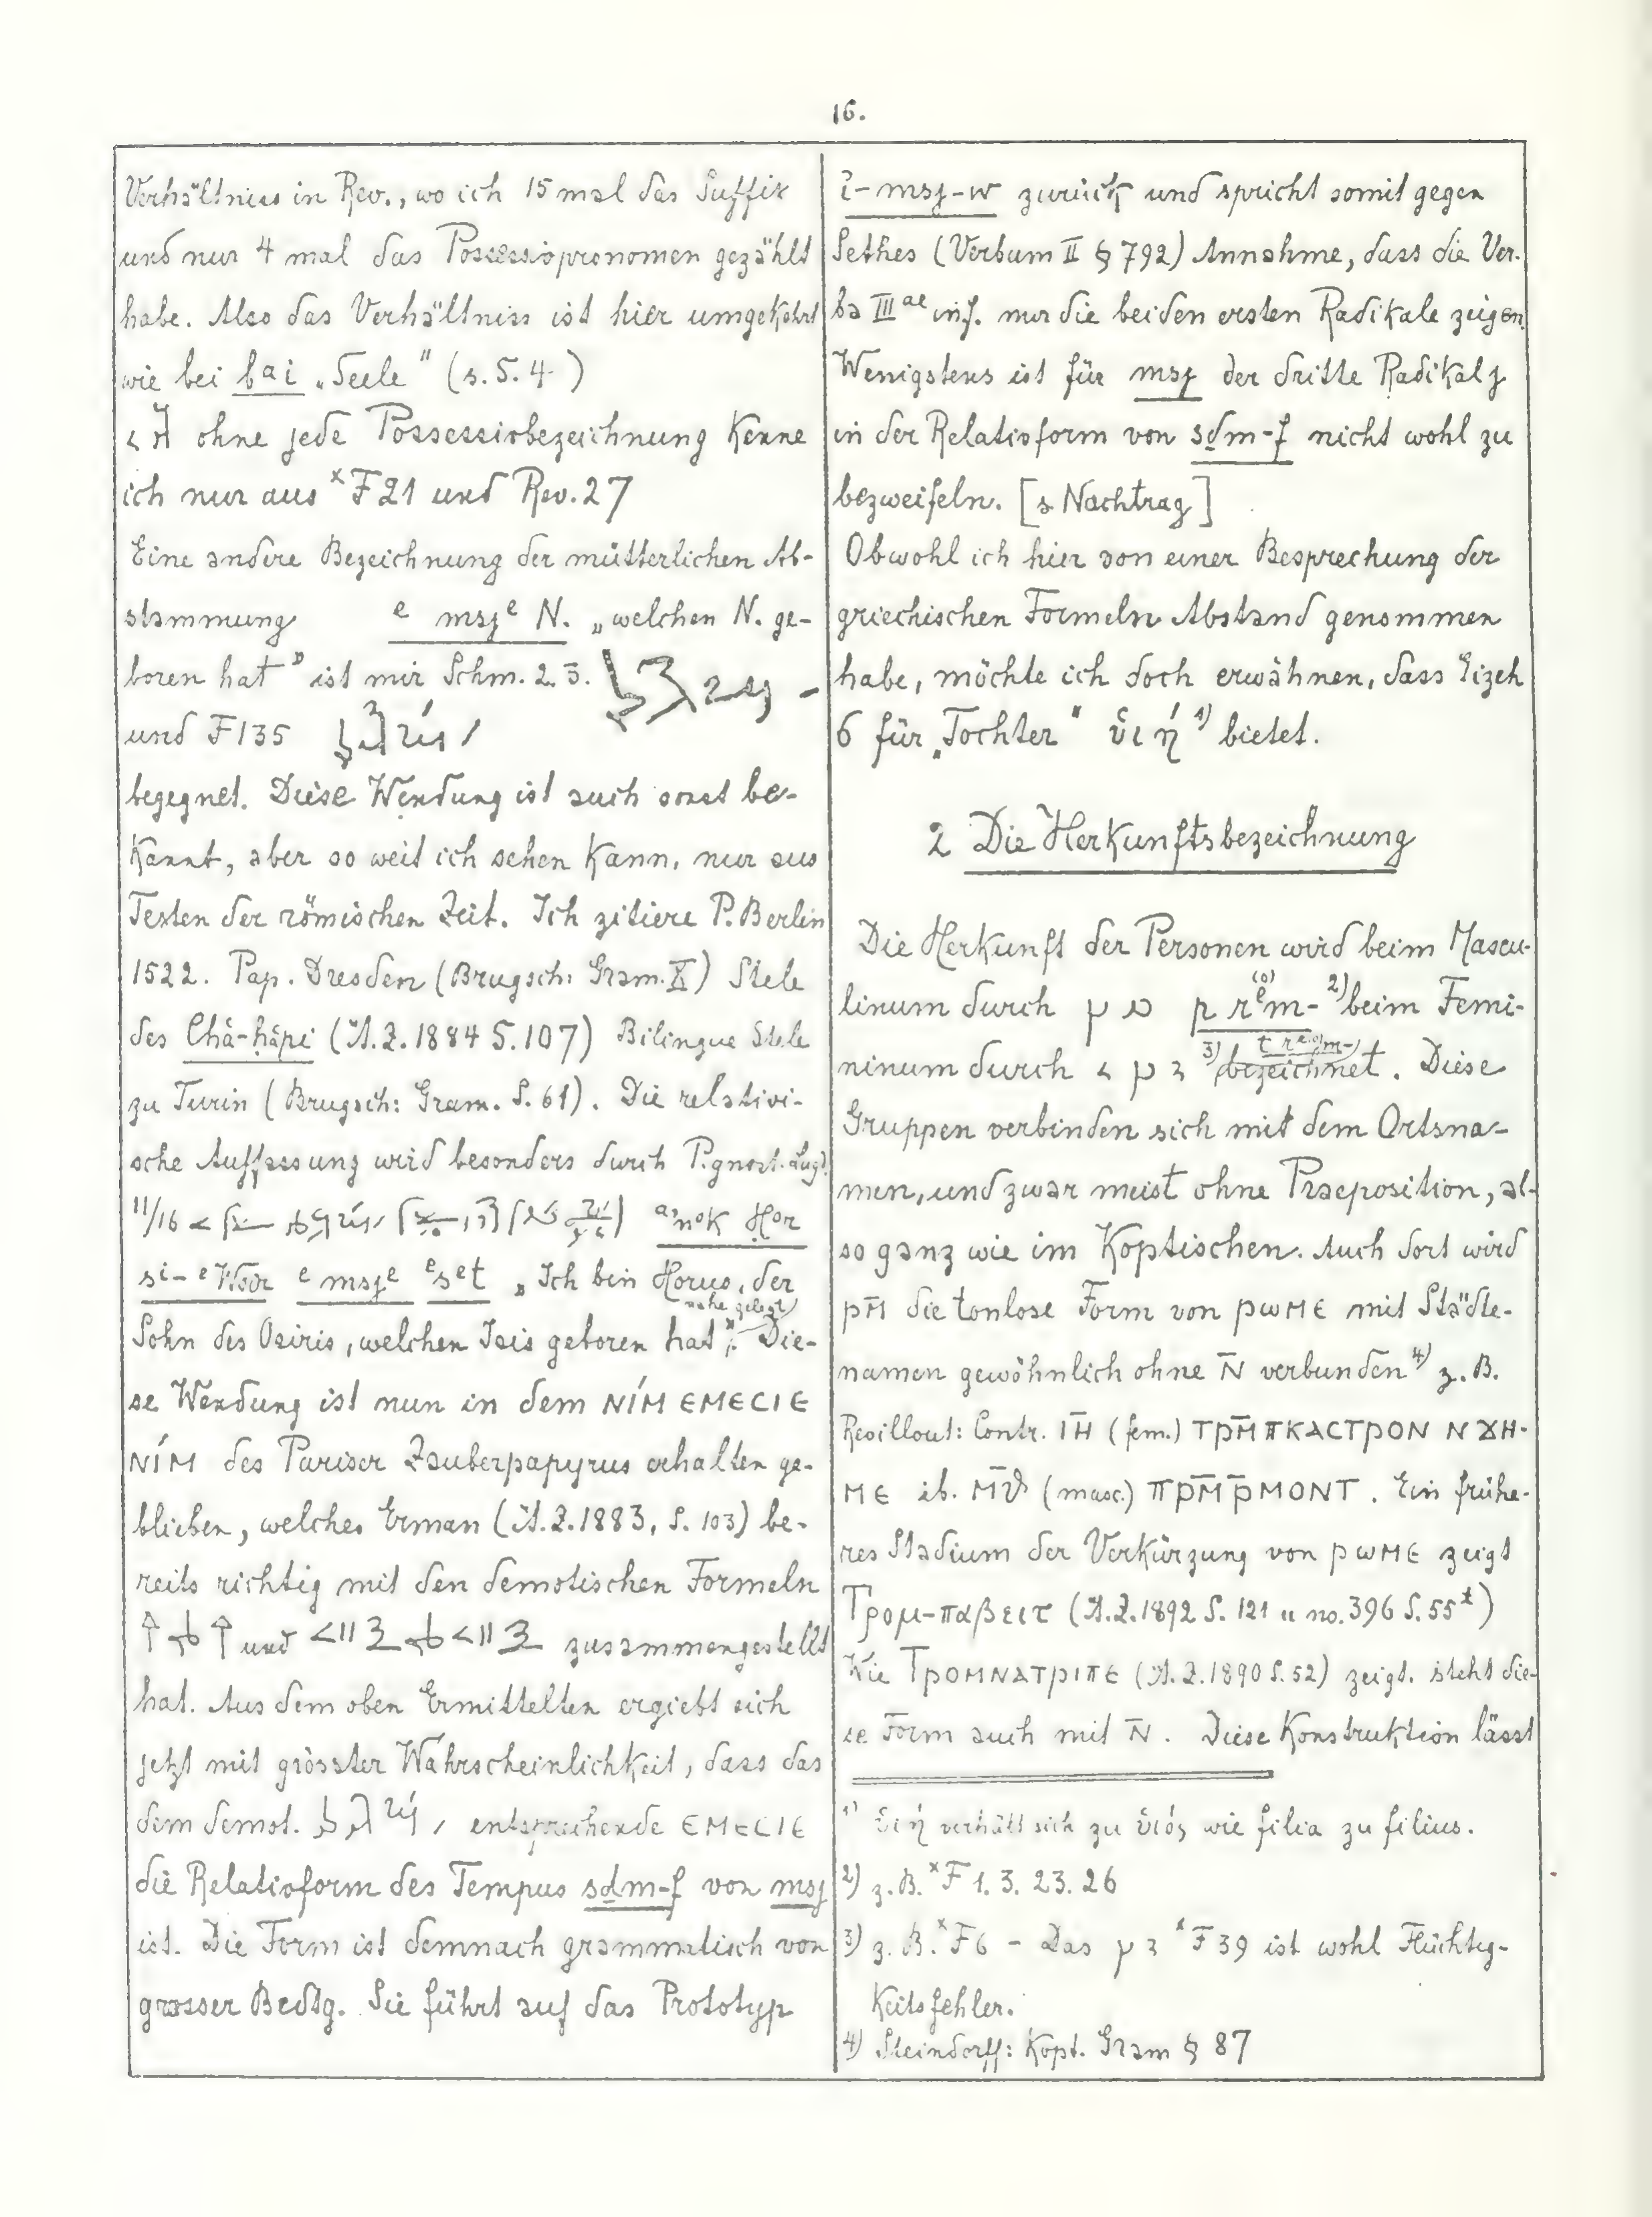 16.
Verhältniss in Rev., wo ich 15 mal das Suffix
und nur 4 mal das Possessivpronomen gezählt
habe. Also das Verhältniss ist hier umgekehrt
wie bei bai „Seele" (s. S. 4)
ohne jede Possessivbezeichnung kenne
ich nur aus ˣF21 und Rev. 27
Eine andere Bezeichnung der mütterlichen Ab-
stammung e msjᵉ N. „welchen N. ge-
boren hat" ist mir Schm. 2. 3.
und F135
begegnet. Diese Wendung ist auch sonst be-
kannt, aber so weit ich sehen kann, nur aus
Texten der römischen Zeit. Ich zitiere P. Berlin
1522. Pap. Dresden (Brugsch: Gram. X) Stele
des Chā-ḥāpi (Ä.Z. 1884 S. 107) Bilingue Stele
zu Turin (Brugsch: Gram. S. 61). Die relativi-
sche Auffassung wird besonders durch P. gnost. Lugd.
11/16 ᵃnok Ḥor
si-ᵉWsir ᵉ msjᵉ ᵉsᵉt „Ich bin Horus, der
Sohn des Osiris, welchen Isis geboren hat" nahe gelegt. Die-
se Wendung ist nun in dem NÍM EMECIE
NÍM des Pariser Zauberpapyrus erhalten ge-
blieben, welches Erman (Ä.Z. 1883, S. 103) be-
reits richtig mit den demotischen Formeln
und zusammengestellt
hat. Aus dem oben Ermittelten ergiebt sich
jetzt mit grösster Wahrscheinlichkeit, dass das
dem demot. entsprechende EMECIE
die Relativform des Tempus sḏm-f von msj
ist. Die Form ist demnach grammatisch von
grosser Bedtg. Sie führt auf das Prototyp
i-msj-w zurück und spricht somit gegen
Sethes (Verbum II § 792) Annahme, dass die Ver-
ba III ae inf. nur die beiden ersten Radikale zeigen.
Wenigstens ist für msj der dritte Radikal j
in der Relativform von sḏm-f nicht wohl zu
bezweifeln. [s Nachtrag]
Obwohl ich hier von einer Besprechung der
griechischen Formeln Abstand genommen
habe, möchte ich doch erwähnen, dass Gizeh
6 für „Tochter" ὑιή ¹⁾ bietet.
2 Die Herkunftsbezeichnung
Die Herkunft der Personen wird beim Mascu-
linum durch p r⁽ᵒ⁾ᵉm- ²⁾ beim Femi-
ninum durch ³⁾ t r⁽ᵒ⁾ᵉm- bezeichnet. Diese
Gruppen verbinden sich mit dem Ortsna-
men, und zwar meist ohne Praeposition, al-
so ganz wie im Koptischen. Auch dort wird
ⲣⲙ̄ die tonlose Form von ⲣⲱⲙⲉ mit Städte-
namen gewöhnlich ohne ⲛ̄ verbunden ⁴⁾ z. B.
Revillout: Contr. ⲓⲏ̄ (fem.) ⲧⲣⲙ̄ⲡⲕⲁⲥⲧⲣⲟⲛ ⲛ ϫⲏ-
ⲙⲉ ib. ⲙ̄ⲑ (masc.) ⲡⲣⲙ̄ⲣ̄ⲙⲟⲛⲧ. Ein frühe-
res Stadium der Verkürzung von ⲣⲱⲙⲉ zeigt
Τρομ-παβειτ (Ä.Z. 1892 S. 121 u no. 396 S. 55ˣ)
Wie Ⲧⲣⲟⲙⲛⲁⲧⲣⲓⲡⲉ (Ä.Z. 1890 S. 52) zeigt, steht die-
se Form auch mit ⲛ̄. Diese Konstruktion lässt
1) ὑιή verhält sich zu ὑιός wie filia zu filius.
2) z. B. ˣF 1. 3. 23. 26
3) z. B. ˣF6 – Das ˣF39 ist wohl Flüchtig-
keitsfehler.
4) Steindorff: Kopt. Gram § 87